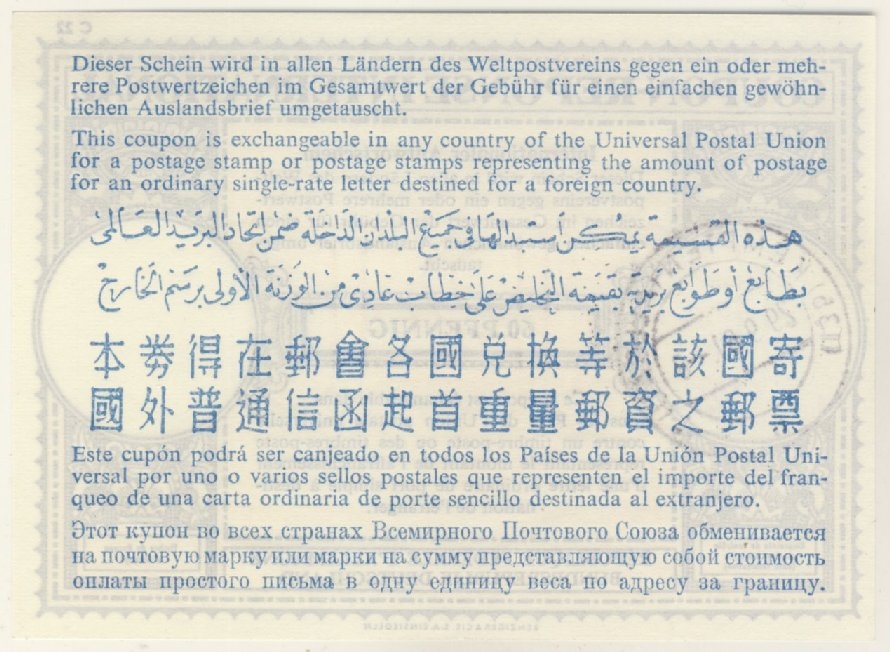 Dieser Schein wird in allen Ländern des Weltpostvereins gegen ein oder meh-
rere Postwertzeichen im Gesamtwert der Gebühr für einen einfachen gewöhn-
lichen Auslandsbrief umgetauscht.
This coupon is exchangeable in any country of the Universal Postal Union
for a postage stamp or postage stamps representing the amount of postage
for an ordinary single-rate letter destined for a foreign country.
هذه القسيمة يمكن استبدالها في جميع البلدان الداخلة ضمن اتحاد البريد العالمى
بطابع أو طوابع بريدية بقيمة التخليص على خطاب عادى من الوزنة الأولى برسم الخارج
本券得在郵會各國兑換等於該國寄
國外普通信函起首重量郵資之郵票
Este cupón podrá ser canjeado en todos los Países de la Unión Postal Uni-
versal por uno o varios sellos postales que representen el importe del fran-
queo de una carta ordinaria de porte sencillo destinada al extranjero.
Этот купон во всех странах Всемирного Почтового Союза обменивается
на почтовую марку или марки на сумму представляющую собой стоимость
оплаты простого письма в одну единицу веса по адресу за границу.